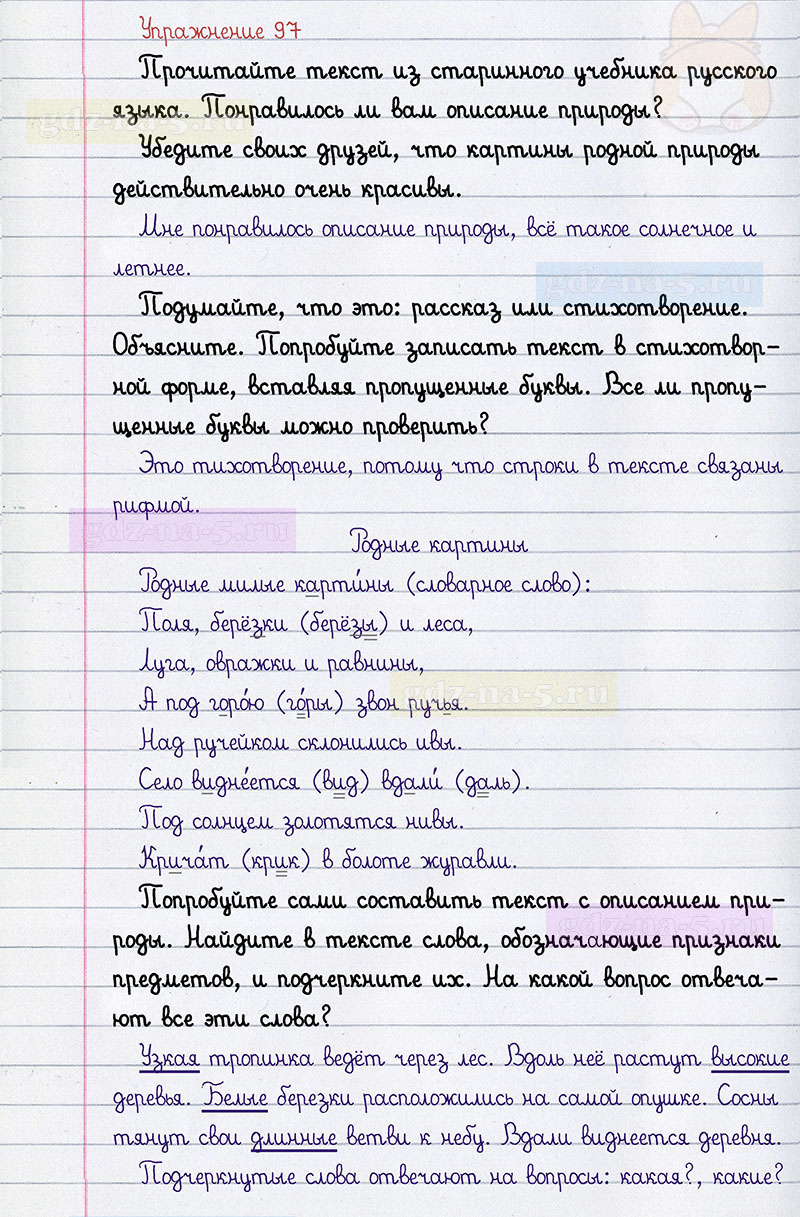 Упражнение 97
Прочитайте текст из старинного учебника русского
языка. Понравилось ли вам описание природы?
gdz-na-5.ru
Убедите своих друзей, что картины родной природы
действительно очень красивы.
Мне понравилось описание природы, всё такое солнечное и
летнее.
gdz-na-5.ru
Подумайте, что это: рассказ или стихотворение.
Объясните. Попробуйте записать текст в стихотвор-
ной форме, вставляя пропущенные буквы. Все ли пропу-
щенные буквы можно проверить?
Это тихотворение, потому что строки в тексте связаны
рифмой.
gdz-na-5.ru
Родные картины
Родные милые карти́ны (словарное слово):
Поля, берёзки (берёзы) и леса,
Луга, овражки и равнины,
А под горо́ю (го́ры) звон ручья.
gdz-na-5.ru
Над ручейком склонились ивы.
Село видне́ется (вид) вдали́ (даль).
Под солнцем золотятся нивы.
Крича́т (крик) в болоте журавли.
Попробуйте сами составить текст с описанием при-
роды. Найдите в тексте слова, обозначающие признаки
gdz-na-5.ru
предметов, и подчеркните их. На какой вопрос отвеча-
ют все эти слова?
Узкая тропинка ведёт через лес. Вдоль неё растут высокие
деревья. Белые березки расположились на самой опушке. Сосны
тянут свои длинные ветви к небу. Вдали виднеется деревня.
Подчеркнутые слова отвечают на вопросы: какая?, какие?